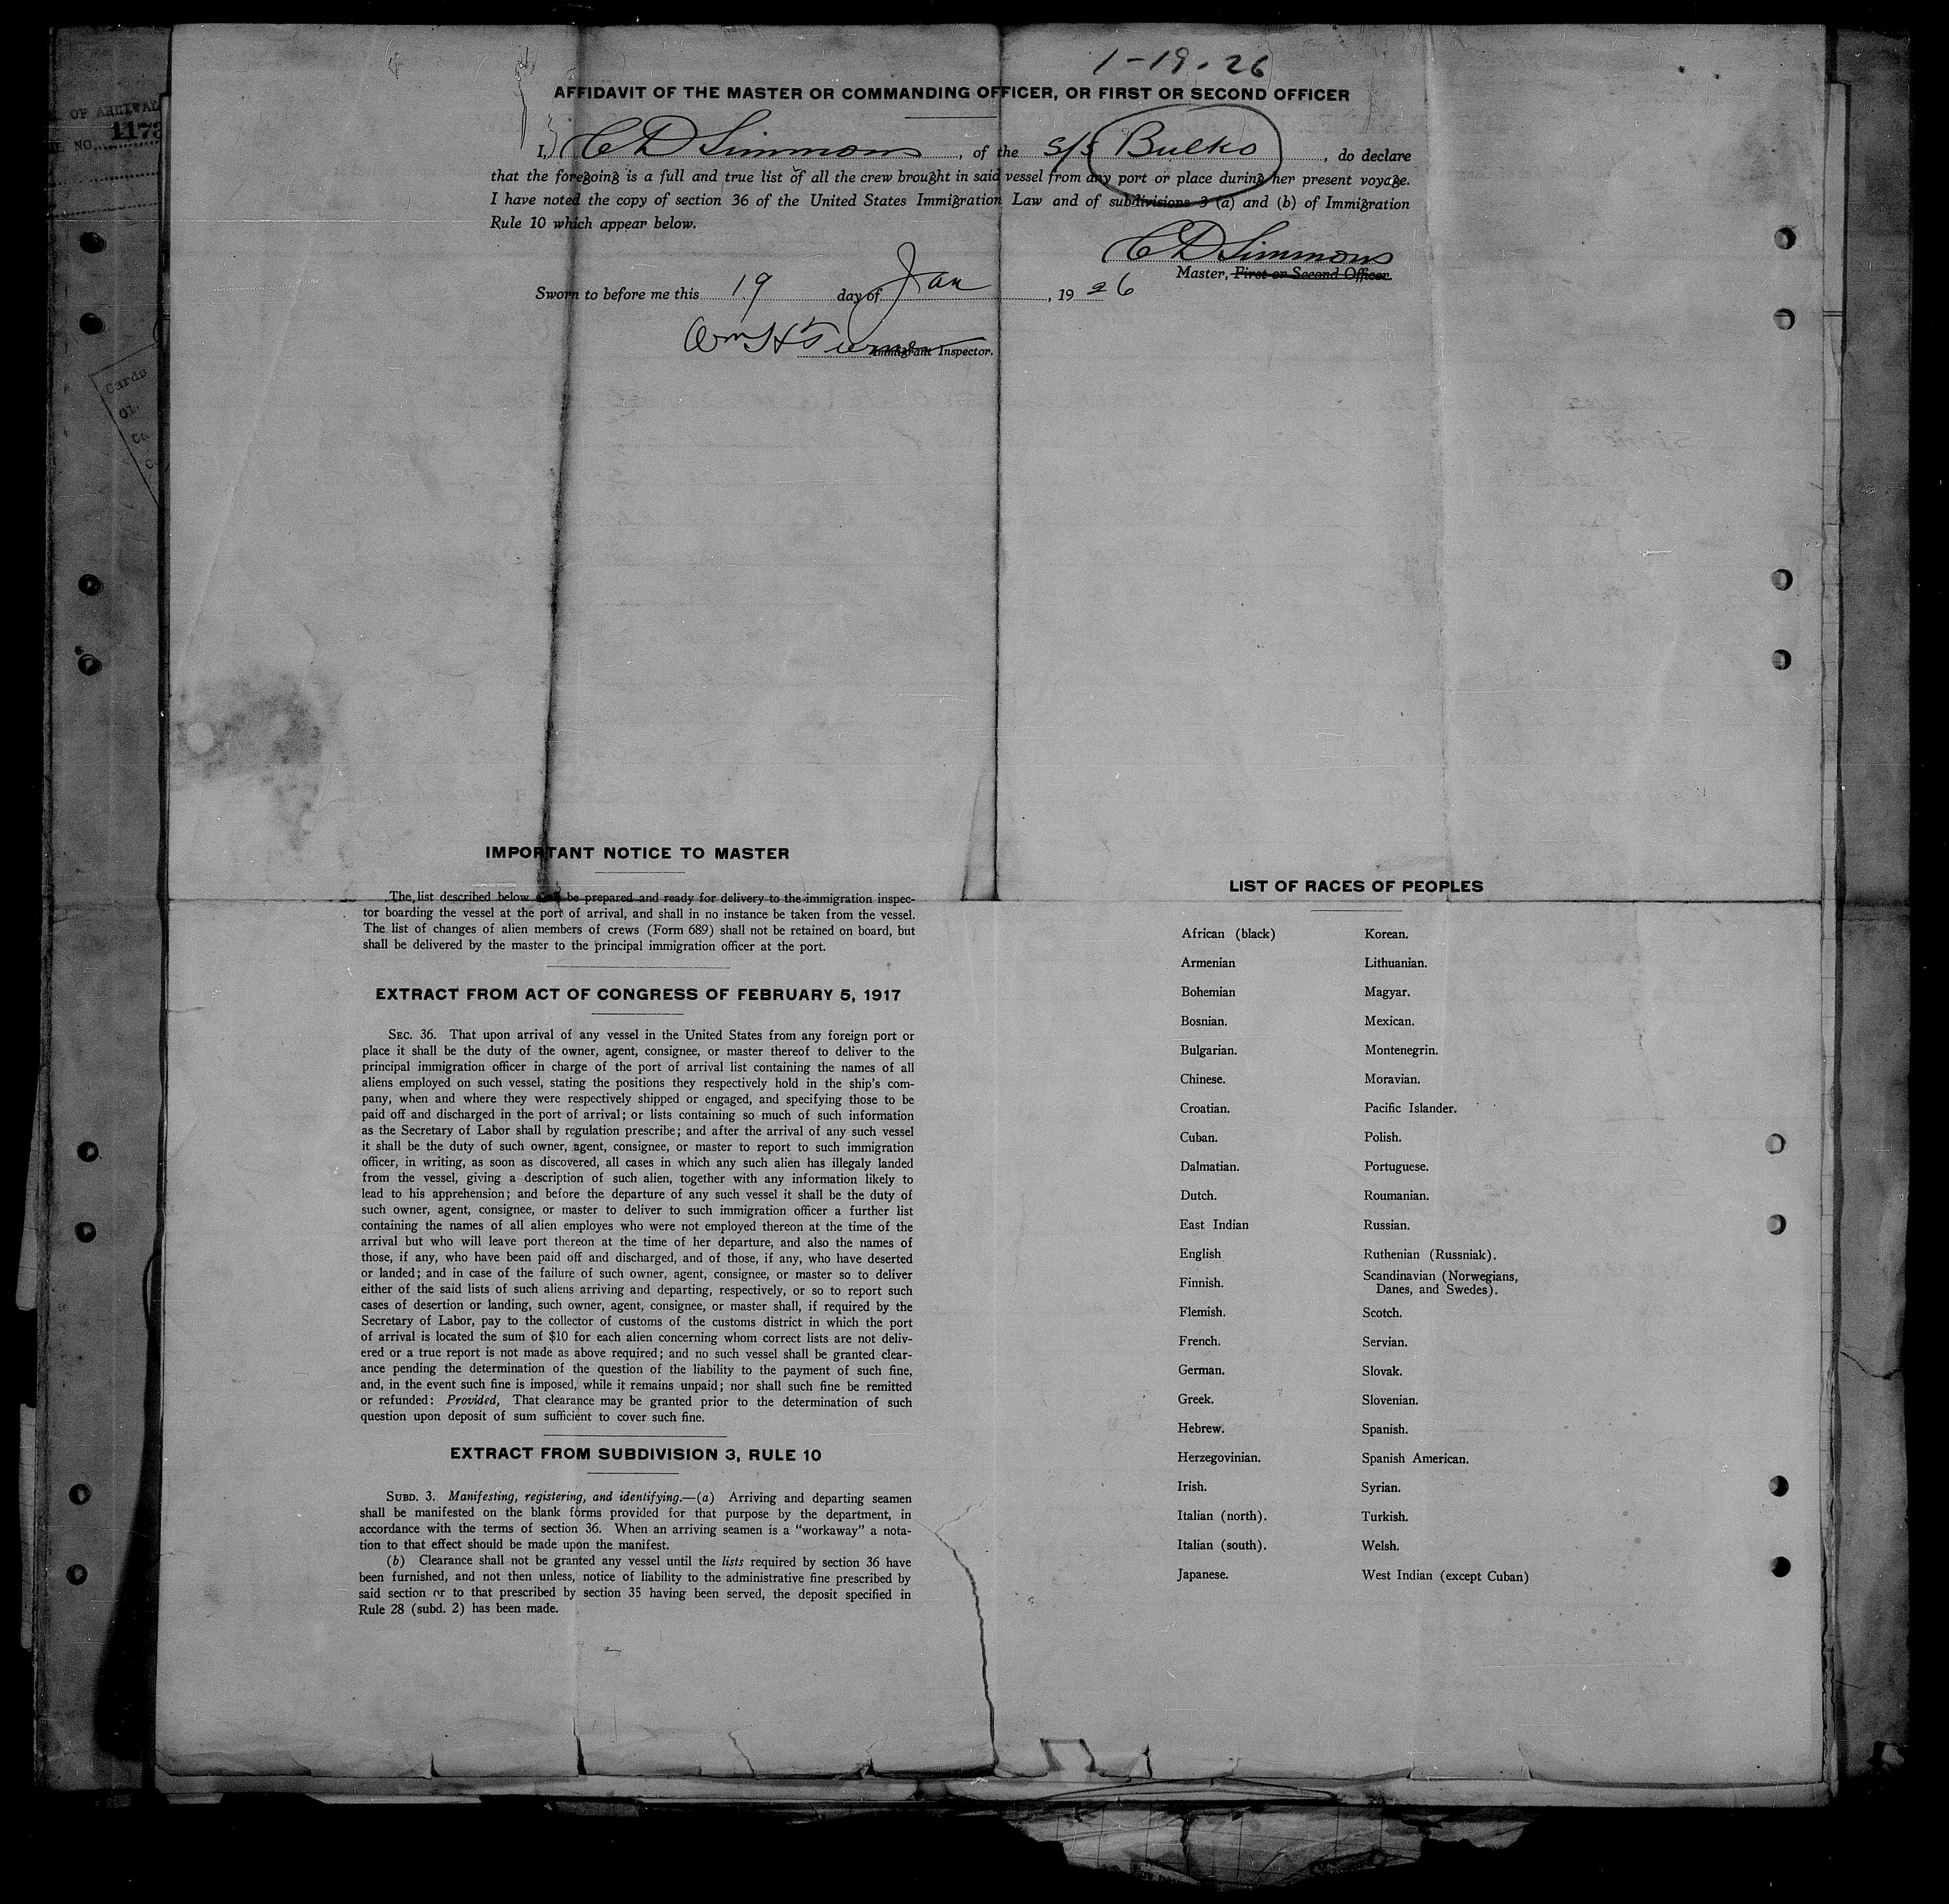 1-19-26
AFFIDAVIT OF THE MASTER OR COMMANDING OFFICER, OR FIRST OR SECOND OFFICER
I, C D Simmons, of the S/S Bulko, do declare
that the foregoing is a full and true list of all the crew brought in said vessel from any port or place during her present voyage.
I have noted the copy of section 36 of the United States Immigration Law and of subdivisions 3 (a) and (b) of Immigration
Rule 10 which appear below.
C D Simmons
Master, First or Second Officer.
Sworn to before me this 19 day of Jan, 1926
Wm H Turner
Immigrant Inspector.
OF ARRIVAL
NO. 1173
Cards
IMPORTANT NOTICE TO MASTER
The list described below be prepared and ready for delivery to the immigration inspec-
tor boarding the vessel at the port of arrival, and shall in no instance be taken from the vessel.
The list of changes of alien members of crews (Form 689) shall not be retained on board, but
shall be delivered by the master to the principal immigration officer at the port.
EXTRACT FROM ACT OF CONGRESS OF FEBRUARY 5, 1917
SEC. 36. That upon arrival of any vessel in the United States from any foreign port or
place it shall be the duty of the owner, agent, consignee, or master thereof to deliver to the
principal immigration officer in charge of the port of arrival list containing the names of all
aliens employed on such vessel, stating the positions they respectively hold in the ship's com-
pany, when and where they were respectively shipped or engaged, and specifying those to be
paid off and discharged in the port of arrival; or lists containing so much of such information
as the Secretary of Labor shall by regulation prescribe; and after the arrival of any such vessel
it shall be the duty of such owner, agent, consignee, or master to report to such immigration
officer, in writing, as soon as discovered, all cases in which any such alien has illegaly landed
from the vessel, giving a description of such alien, together with any information likely to
lead to his apprehension; and before the departure of any such vessel it shall be the duty of
such owner, agent, consignee, or master to deliver to such immigration officer a further list
containing the names of all alien employes who were not employed thereon at the time of the
arrival but who will leave port thereon at the time of her departure, and also the names of
those, if any, who have been paid off and discharged, and of those, if any, who have deserted
or landed; and in case of the failure of such owner, agent, consignee, or master so to deliver
either of the said lists of such aliens arriving and departing, respectively, or so to report such
cases of desertion or landing, such owner, agent, consignee, or master shall, if required by the
Secretary of Labor, pay to the collector of customs of the customs district in which the port
of arrival is located the sum of $10 for each alien concerning whom correct lists are not deliv-
ered or a true report is not made as above required; and no such vessel shall be granted clear-
ance pending the determination of the question of the liability to the payment of such fine,
and, in the event such fine is imposed, while it remains unpaid; nor shall such fine be remitted
or refunded: Provided, That clearance may be granted prior to the determination of such
question upon deposit of sum sufficient to cover such fine.
EXTRACT FROM SUBDIVISION 3, RULE 10
SUBD. 3. Manifesting, registering, and identifying.—(a) Arriving and departing seamen
shall be manifested on the blank forms provided for that purpose by the department, in
accordance with the terms of section 36. When an arriving seamen is a "workaway" a nota-
tion to that effect should be made upon the manifest.
(b) Clearance shall not be granted any vessel until the lists required by section 36 have
been furnished, and not then unless, notice of liability to the administrative fine prescribed by
said section or to that prescribed by section 35 having been served, the deposit specified in
Rule 28 (subd. 2) has been made.
LIST OF RACES OF PEOPLES
African (black) Korean.
Armenian Lithuanian.
Bohemian Magyar.
Bosnian. Mexican.
Bulgarian. Montenegrin.
Chinese. Moravian.
Croatian. Pacific Islander.
Cuban. Polish.
Dalmatian. Portuguese.
Dutch. Roumanian.
East Indian Russian.
English Ruthenian (Russniak).
Finnish. Scandinavian (Norwegians,
Danes, and Swedes).
Flemish. Scotch.
French. Servian.
German. Slovak.
Greek. Slovenian.
Hebrew. Spanish.
Herzegovinian. Spanish American.
Irish. Syrian.
Italian (north). Turkish.
Italian (south). Welsh.
Japanese. West Indian (except Cuban)